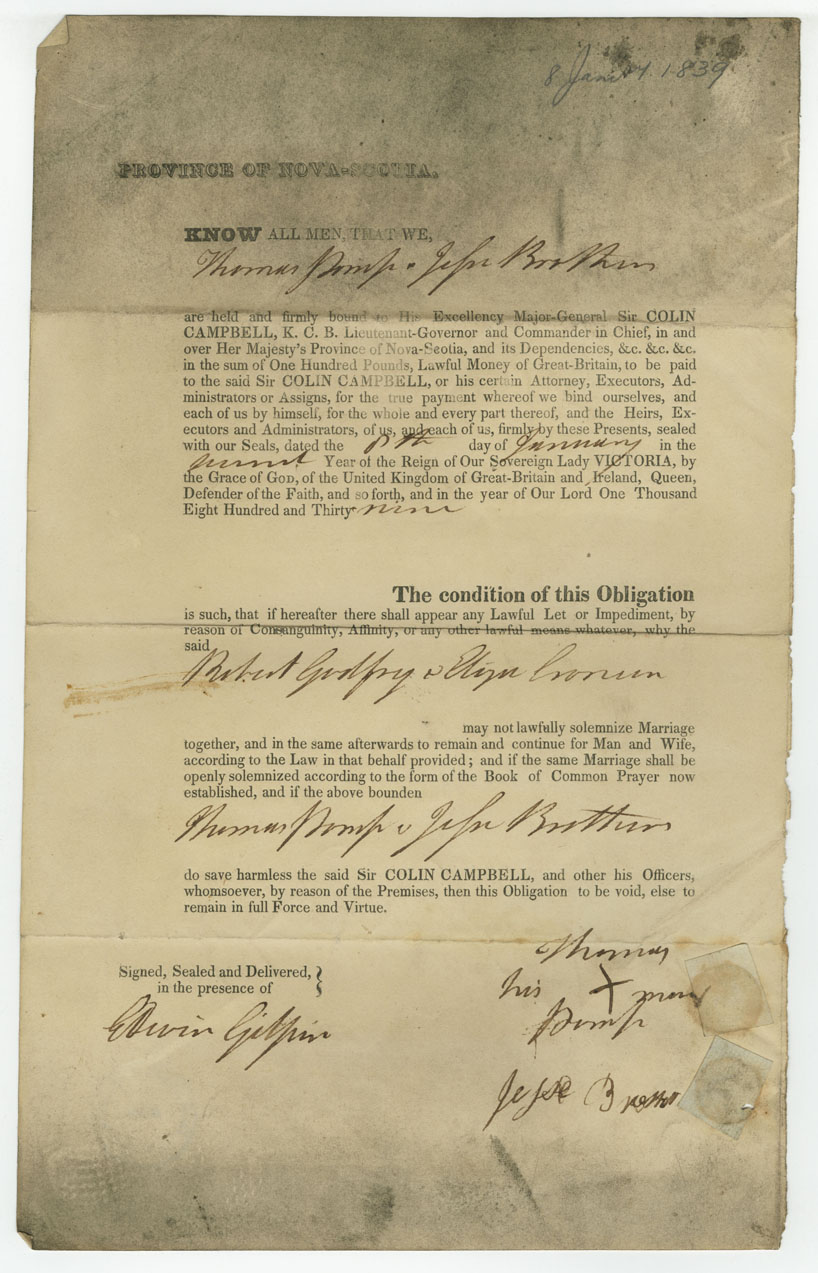 8 Jany 1839
PROVINCE OF NOVA-SCOTIA.
KNOW ALL MEN, THAT WE,
Thomas Pomp & Jesse Brothers
are held and firmly bound to His Excellency Major-General Sir COLIN
CAMPBELL, K. C. B. Lieutenant-Governor and Commander in Chief, in and
over Her Majesty's Province of Nova-Scotia, and its Dependencies, &c. &c. &c.
in the sum of One Hundred Pounds, Lawful Money of Great-Britain, to be paid
to the said Sir COLIN CAMPBELL, or his certain Attorney, Executors, Ad-
ministrators or Assigns, for the true payment whereof we bind ourselves, and
each of us by himself, for the whole and every part thereof, and the Heirs, Ex-
ecutors and Administrators, of us, and each of us, firmly by these Presents, sealed
with our Seals, dated the 8th day of January in the
Year of the Reign of Our Sovereign Lady VICTORIA, by
the Grace of GOD, of the United Kingdom of Great-Britain and Ireland, Queen,
Defender of the Faith, and so forth, and in the year of Our Lord One Thousand
Eight Hundred and Thirty-nine
The condition of this Obligation
is such, that if hereafter there shall appear any Lawful Let or Impediment, by
reason of Consanguinity, Affinity, or any other lawful means whatever, why the
said
Robert Godfry & Eliza Cronien
may not lawfully solemnize Marriage
together, and in the same afterwards to remain and continue for Man and Wife,
according to the Law in that behalf provided; and if the same Marriage shall be
openly solemnized according to the form of the Book of Common Prayer now
established, and if the above bounden
Thomas Pomp & Jesse Brothers
do save harmless the said Sir COLIN CAMPBELL, and other his Officers,
whomsoever, by reason of the Premises, then this Obligation to be void, else to
remain in full Force and Virtue.
Signed, Sealed and Delivered,
in the presence of
Edwin Gilpin
Thomas
his X mark
Pomp
Jesse